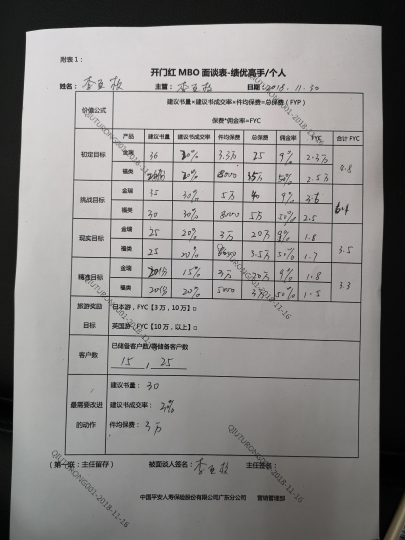 附表1:
开门红 MBO 面谈表-绩优高手/个人
姓名: 主管: 日期: 2018.11.30
价值公式 建议书量×建议书成交率×件均保费=总保费(FYP)
保费*佣金率=FYC
产品 建议书量 建议书成交率 件均保费 总保费 佣金率 FYC 合计 FYC
初定目标 金瑞 36 20% 3.5万 25 9% 2.3万 4.8
福类 20% 8000 50% 2.5万
挑战目标 金瑞 35 30% 5万 40 9% 3.6 6.1
福类 30 30% 8000 5万 50% 2.5
现实目标 金瑞 25 20% 3万 20万 9% 1.8 3.5
福类 25 20% 3.5万 50% 1.7
精准目标 金瑞 20份 15% 3万 20万 9% 1.8 3.3
福类 20份 20% 5000 3万 50% 1.5
旅游奖励 日本游,FYC【3万,10万】□
目标 英国游,FYC【10万,以上】□
客户数 已储备客户数/需储备客户数
15 , 25
建议书量: 30
最需要改进 建议书成交率:
的动作 件均保费: 3万
(第一联:主任留存) 被面谈人签名: 主任签名:
中国平安人寿保险股份有限公司广东分公司 营销管理部
QIUTURONG001-2018-11-16
QIUTURONG001-2018-11-16
QIUTURONG001-2018-11-16
QIUTURONG001-2018-11-16
QIUTURONG001-2018-11-16
QIUTURONG001-2018-11-16